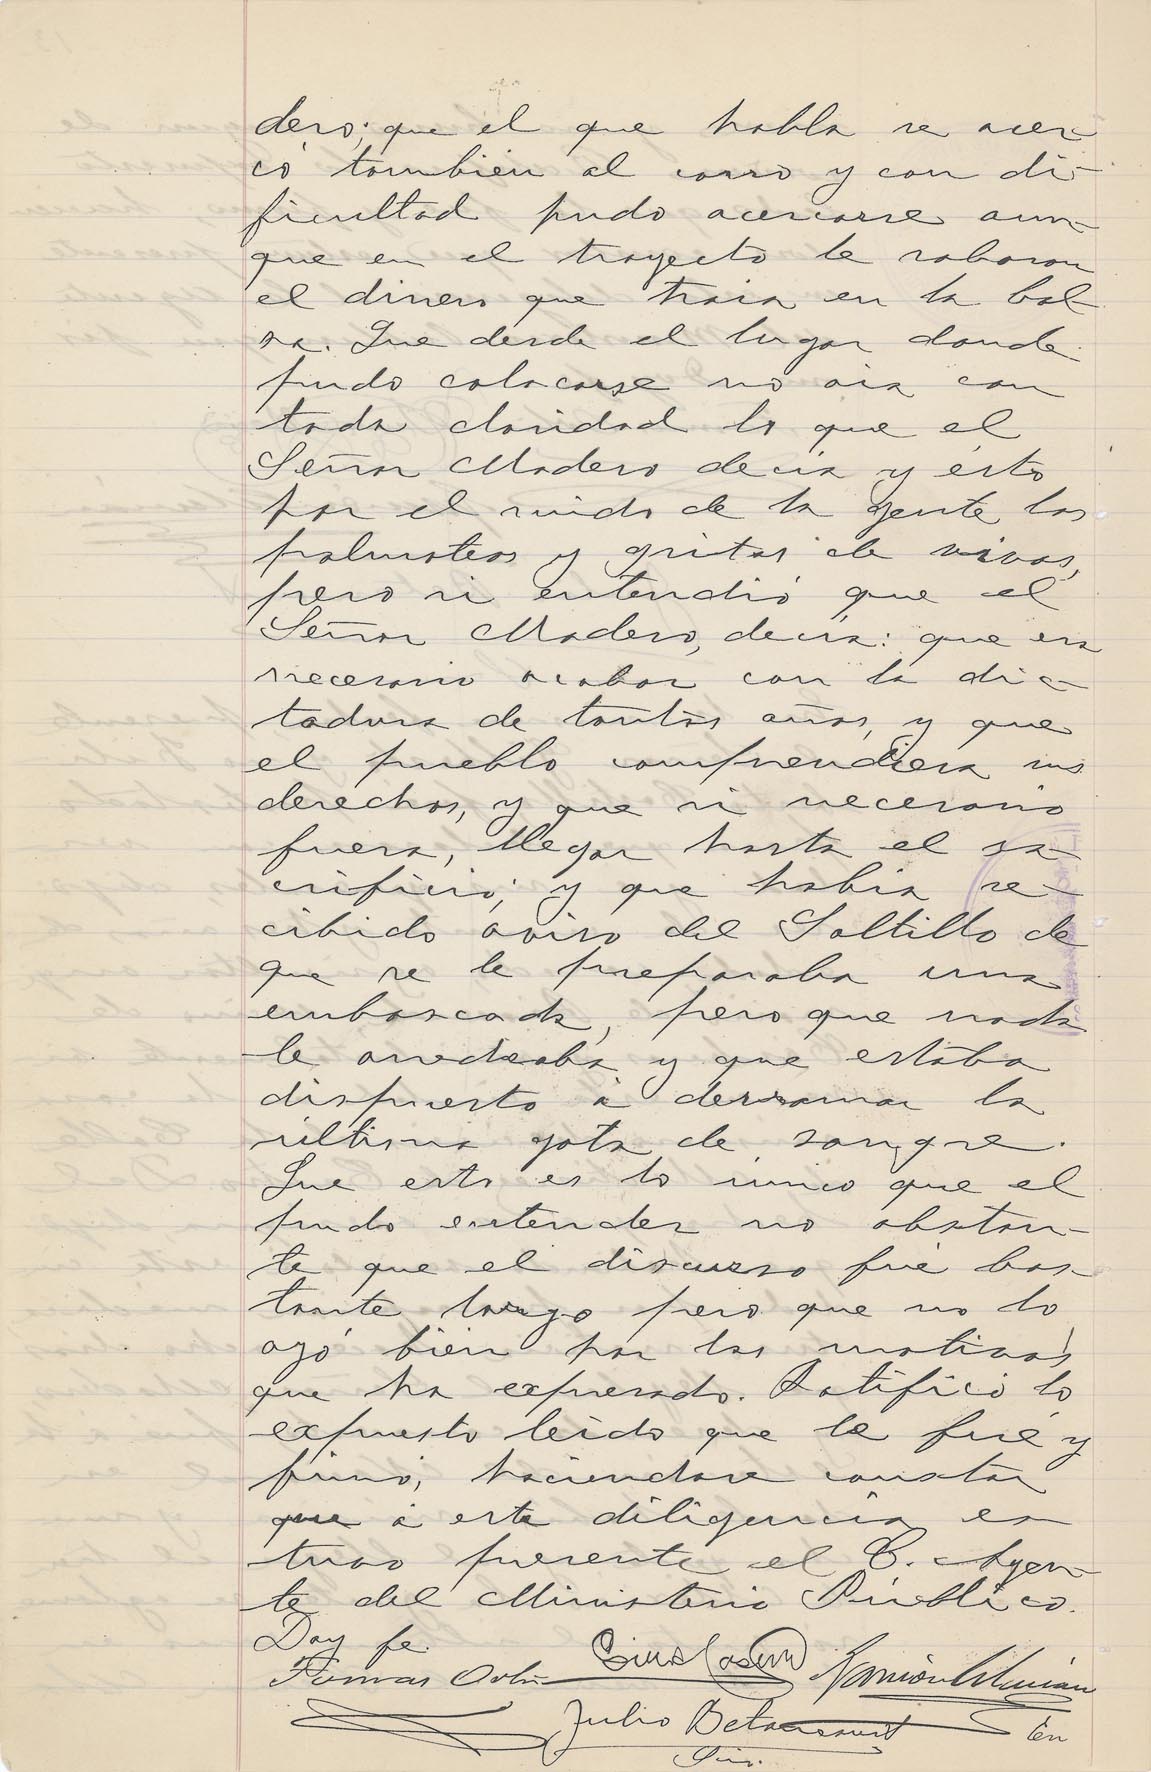 dero; que el que habla se acer-
có también al carro y con di-
ficultad pudo acercarse aun-
que en el trayecto le robaron
el dinero que traia en la bol-
sa. Que desde el lugar donde
pudo colocarse no oia con
toda claridad lo que el
Señor Madero decía y ésto
por el ruido de la gente, los
palmoteos y gritos de vivas,
pero si entendió que el
Señor Madero, decía: que era
necesario acabar con la dic-
tadura de tantos años, y que
el pueblo comprendiera sus
derechos, y que si necesario
fuera, llegar hasta el sa-
crificio; y que habia re-
cibido aviso del Saltillo de
que se le preparaba una
emboscada, pero que nada
le arredraba y que estaba
dispuesto á derramar la
última gota de sangre.
Que esto es lo único que el
pudo entender no obstan-
te que el discurso fué bas-
tante largo pero que no lo
oyó bien por los motivos
que ha expresado. Ratificó lo
expuesto leido que le fué y
firmó, haciendose constar
que á esta diligencia es
tuvo presente el C. Agen-
te del Ministerio Público.
Doy fe.
Tomas
Ramón
Julio Betancourt
En